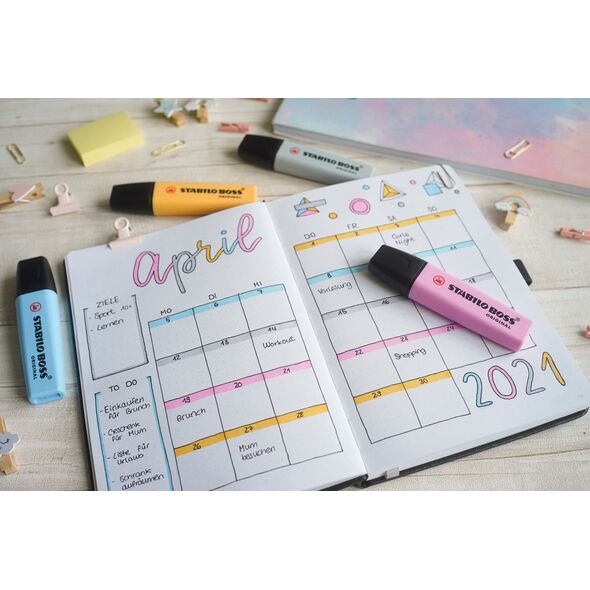 april
ZIELE
- Sport 10x
- Lernen
TO DO
- Einkaufen
für Brunch
- Geschenk
für Mum
- Liste für
Urlaub
- Schrank
aufräumen
MO DI MI
5 6 7
12 13 14
Workout
19 20 21
Brunch
26 27 28
Mum
besuchen
DO FR SA SO
1 2 3 4
Girls
Night
8 11
Vorlesung
15 16
22 23 24
Shopping
29 30
2021
STABILO BOSS
ORIGINAL
STABILO BOSS
ORIGINAL
STABILO BOSS
ORIGINAL
STABILO BOSS
ORIGINAL